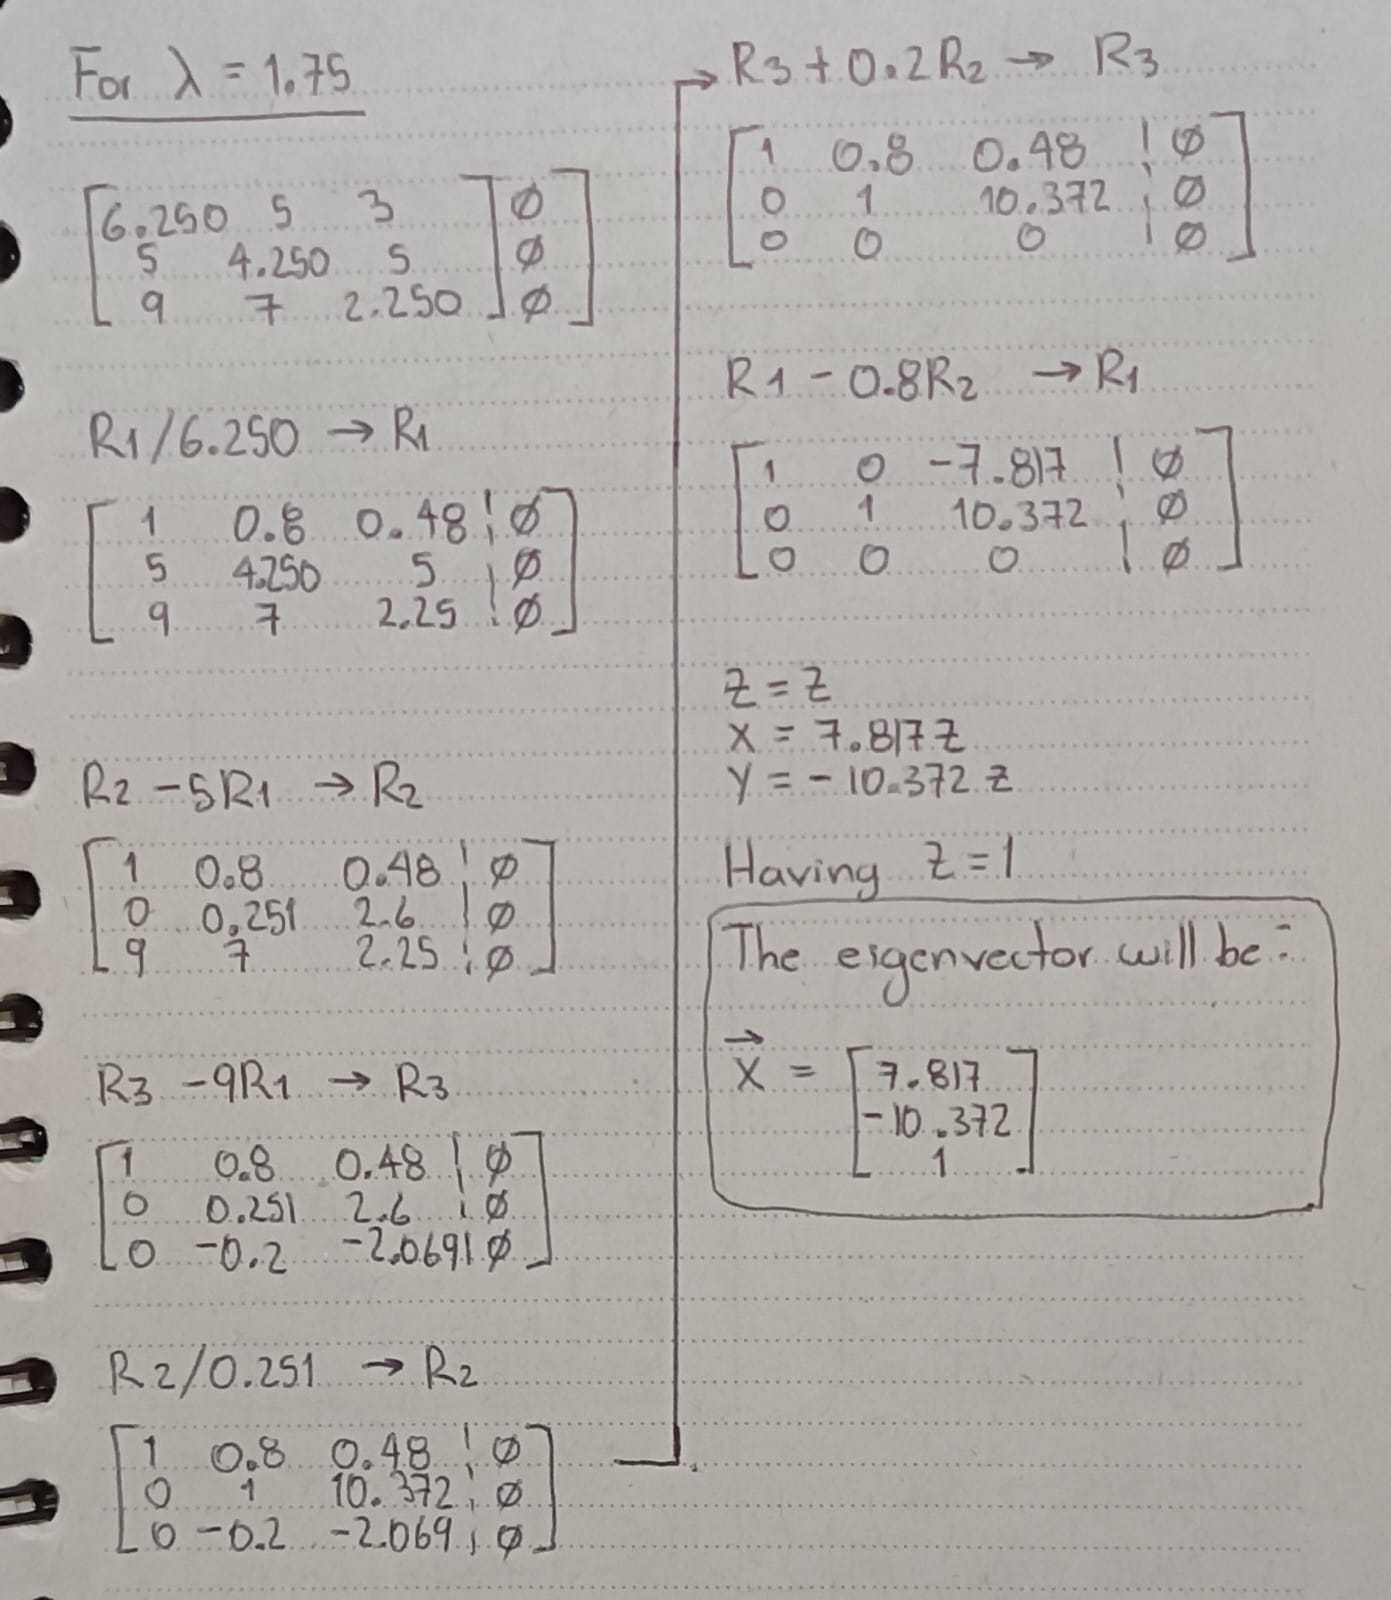 For λ = 1.75
[6.250 5 3 ] ∅ ]
[5 4.250 5 ] ∅ ]
[9 7 2.250 ] ∅ ]
R1/6.250 → R1
[1 0.8 0.48 ¦ ∅]
[5 4.250 5 ¦ ∅]
[9 7 2.25 ¦ ∅]
R2 - 5R1 → R2
[1 0.8 0.48 ¦ ∅]
[0 0.251 2.6 ¦ ∅]
[9 7 2.25 ¦ ∅]
R3 - 9R1 → R3
[1 0.8 0.48 ¦ ∅]
[0 0.251 2.6 ¦ ∅]
[0 -0.2 -2.069 ¦ ∅]
R2/0.251 → R2
[1 0.8 0.48 ¦ ∅]
[0 1 10.372 ¦ ∅]
[0 -0.2 -2.069 ¦ ∅]
→ R3 + 0.2R2 → R3
[1 0.8 0.48 ¦ ∅]
[0 1 10.372 ¦ ∅]
[0 0 0 ¦ ∅]
R1 - 0.8R2 → R1
[1 0 -7.817 ¦ ∅]
[0 1 10.372 ¦ ∅]
[0 0 0 ¦ ∅]
Z = Z
X = 7.817 Z
Y = -10.372 Z
Having Z = 1
The eigenvector will be:
X⃗ = [7.817]
[-10.372]
[1]